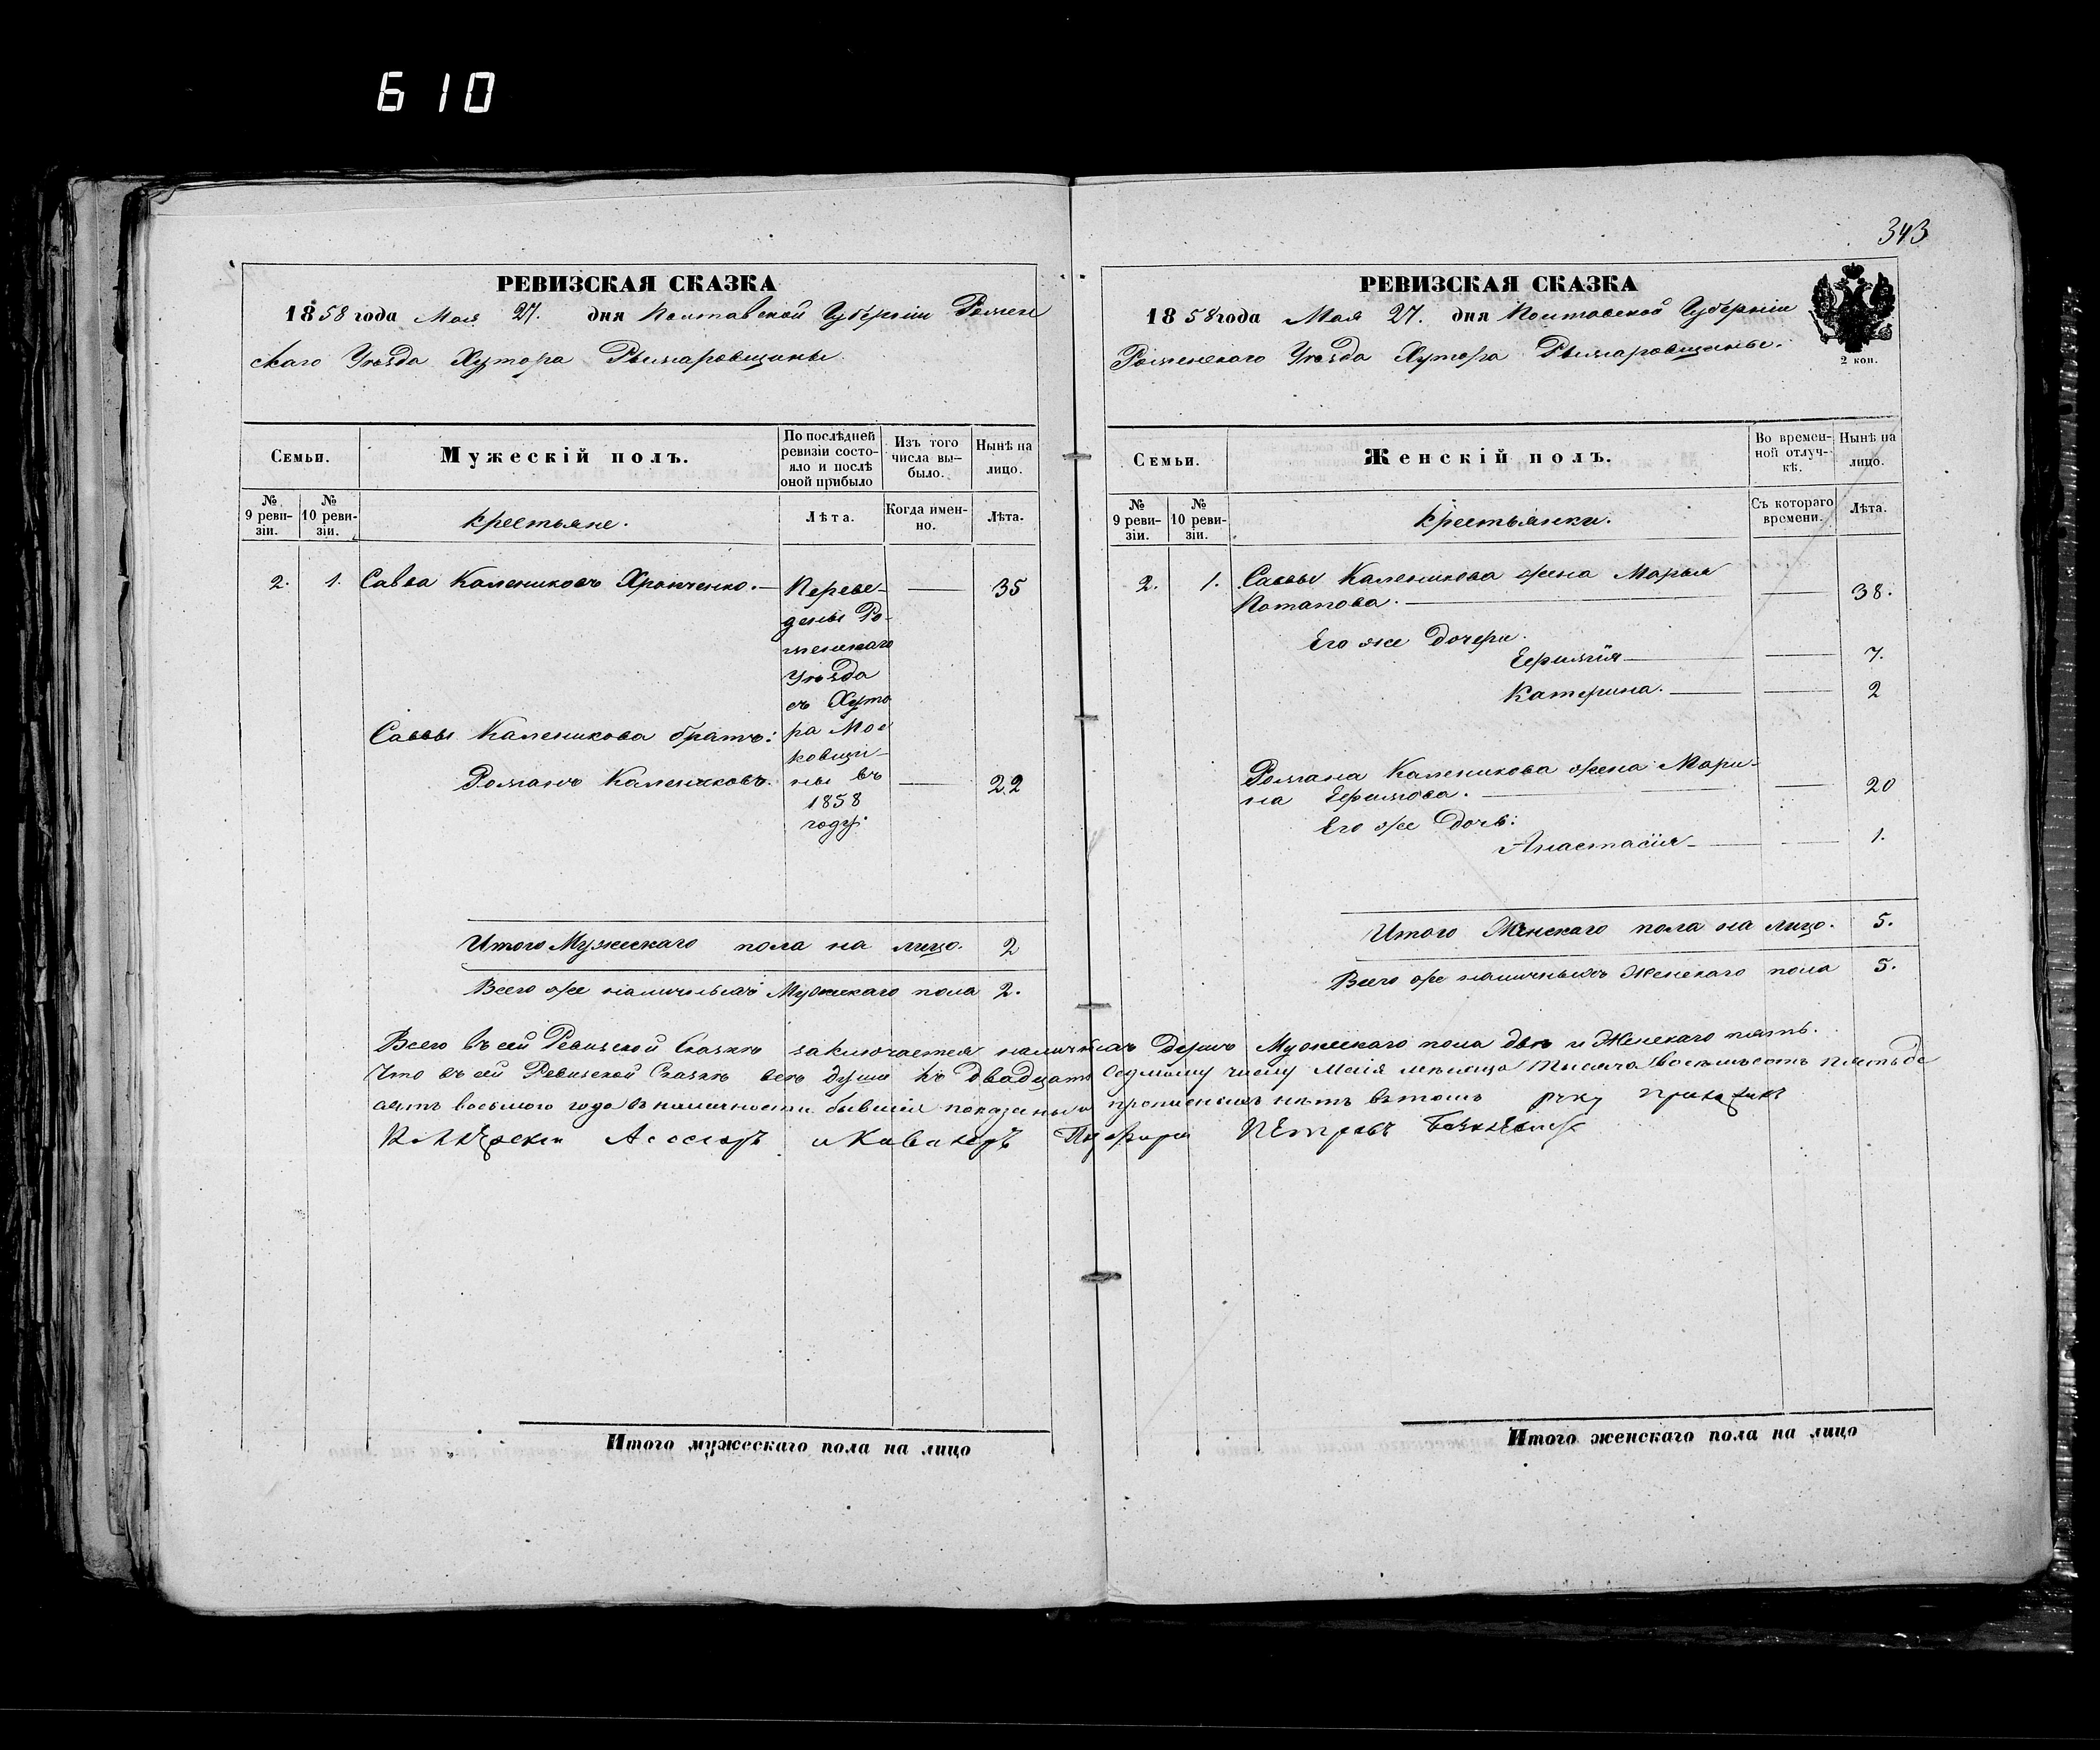 610
343
РЕВИЗСКАЯ СКАЗКА
1858 года Мая 27. дня Полтавской Губерніи Ромен
скаго Уѣзда Хутора Рымаровщины
Семьи.
Мужескій полъ.
По послѣдней ревизіи состояло и послѣ оной прибыло
Изъ того числа выбыло.
Нынѣ на лицо.
№ 9 ревизіи.
№ 10 ревизіи.
крестьяне.
Лѣта.
Когда именно.
Лѣта.
2. 1. Савва Калениковъ Хранченко. — 35
Переве-
дены Ро-
менскаго
Уѣзда
съ Хуто
ра Мос
ковщи-
ны въ
1858
году.
Саввы Каленикова братъ:
Романъ Калениковъ. — 22
Итого Мужескаго пола на лицо. 2
Всего же наличныхъ Мужескаго пола 2.
РЕВИЗСКАЯ СКАЗКА
1858 года Мая 27. дня Полтавской Губерніи
Роменскаго Уѣзда Хутора Рымаровщины.
2 коп.
Семьи.
Женскій полъ.
Во временной отлучкѣ.
Нынѣ на лицо.
№ 9 ревизіи.
№ 10 ревизіи.
крестьянки.
Съ котораго времени.
Лѣта.
2. 1. Саввы Каленикова жена Марья
Потапова. — 38.
Его же Дочери.
Ефимія — 7.
Катерина. — 2
Романа Каленикова жена Мари-
на Ефимова. — 20
Его же Дочь:
Анастасія — 1.
Итого Женскаго пола на лицо. 5.
Всего же наличныхъ Женскаго пола 5.
Всего въ сей Ревизской Сказкѣ заключается наличныхъ Душъ Мужескаго пола двѣ и Женскаго пять.
Что въ сей Ревизской Сказкѣ всѣ души къ двадцать седьмому числу Маія мѣсяца тысяча восемьсотъ пятьде
сятъ восьмого года въ наличности бывшія показаны и прописныхъ нѣтъ въ томъ руку
Ассесоръ и Кавалеръ Петровъ
Итого мужескаго пола на лицо
Итого женскаго пола на лицо